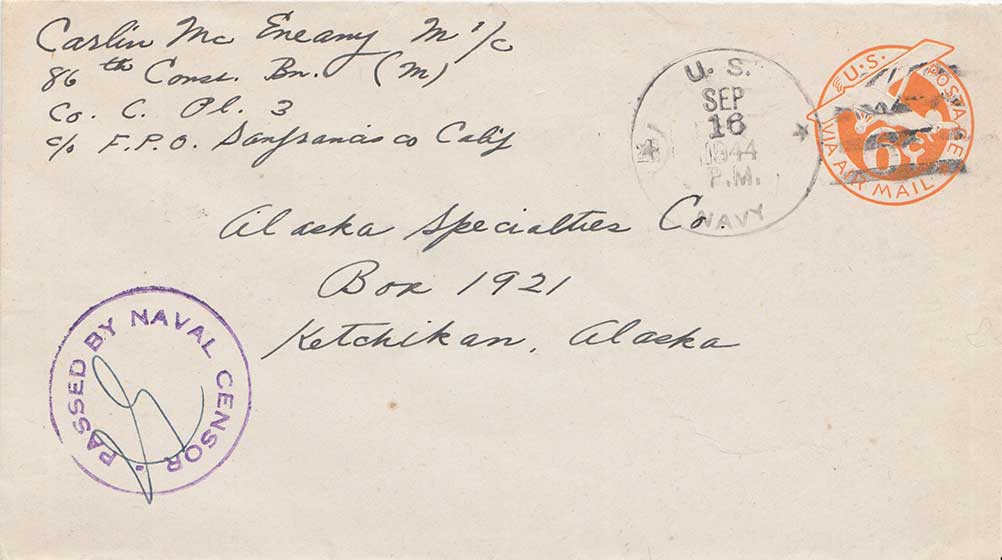 Carlin Mc Eneany M 1/c
86th Const. Bn. (M)
Co. C. Pl. 3
c/o F.P.O. Sanfrancisco Calif
U. S.
SEP
16
1944
P.M.
NAVY
U.S. POSTAGE
6¢
VIA AIR MAIL
Alaska Specialties Co.
Box 1921
Ketchikan, Alaska
PASSED BY NAVAL CENSOR